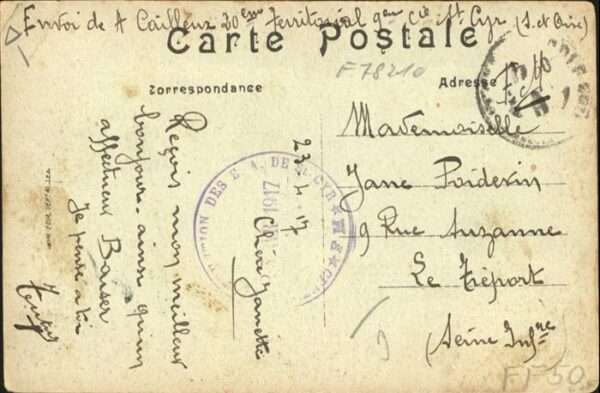 Envoi de A Cailleux 30eme Territorial 9eme Cie St Cyr (S. et Oise)
Carte Postale
F78210
Correspondance
Adresse
23-4-17
Chère Janette
Reçois mon meilleur
bonjour ainsi qu'un
affectueux Baiser
Je pense à toi
Mademoiselle
Jane Poidevin
9 Rue Suzanne
Le Tréport
(Seine Infre
DES E. A. DE ST CYR
1917
FF50